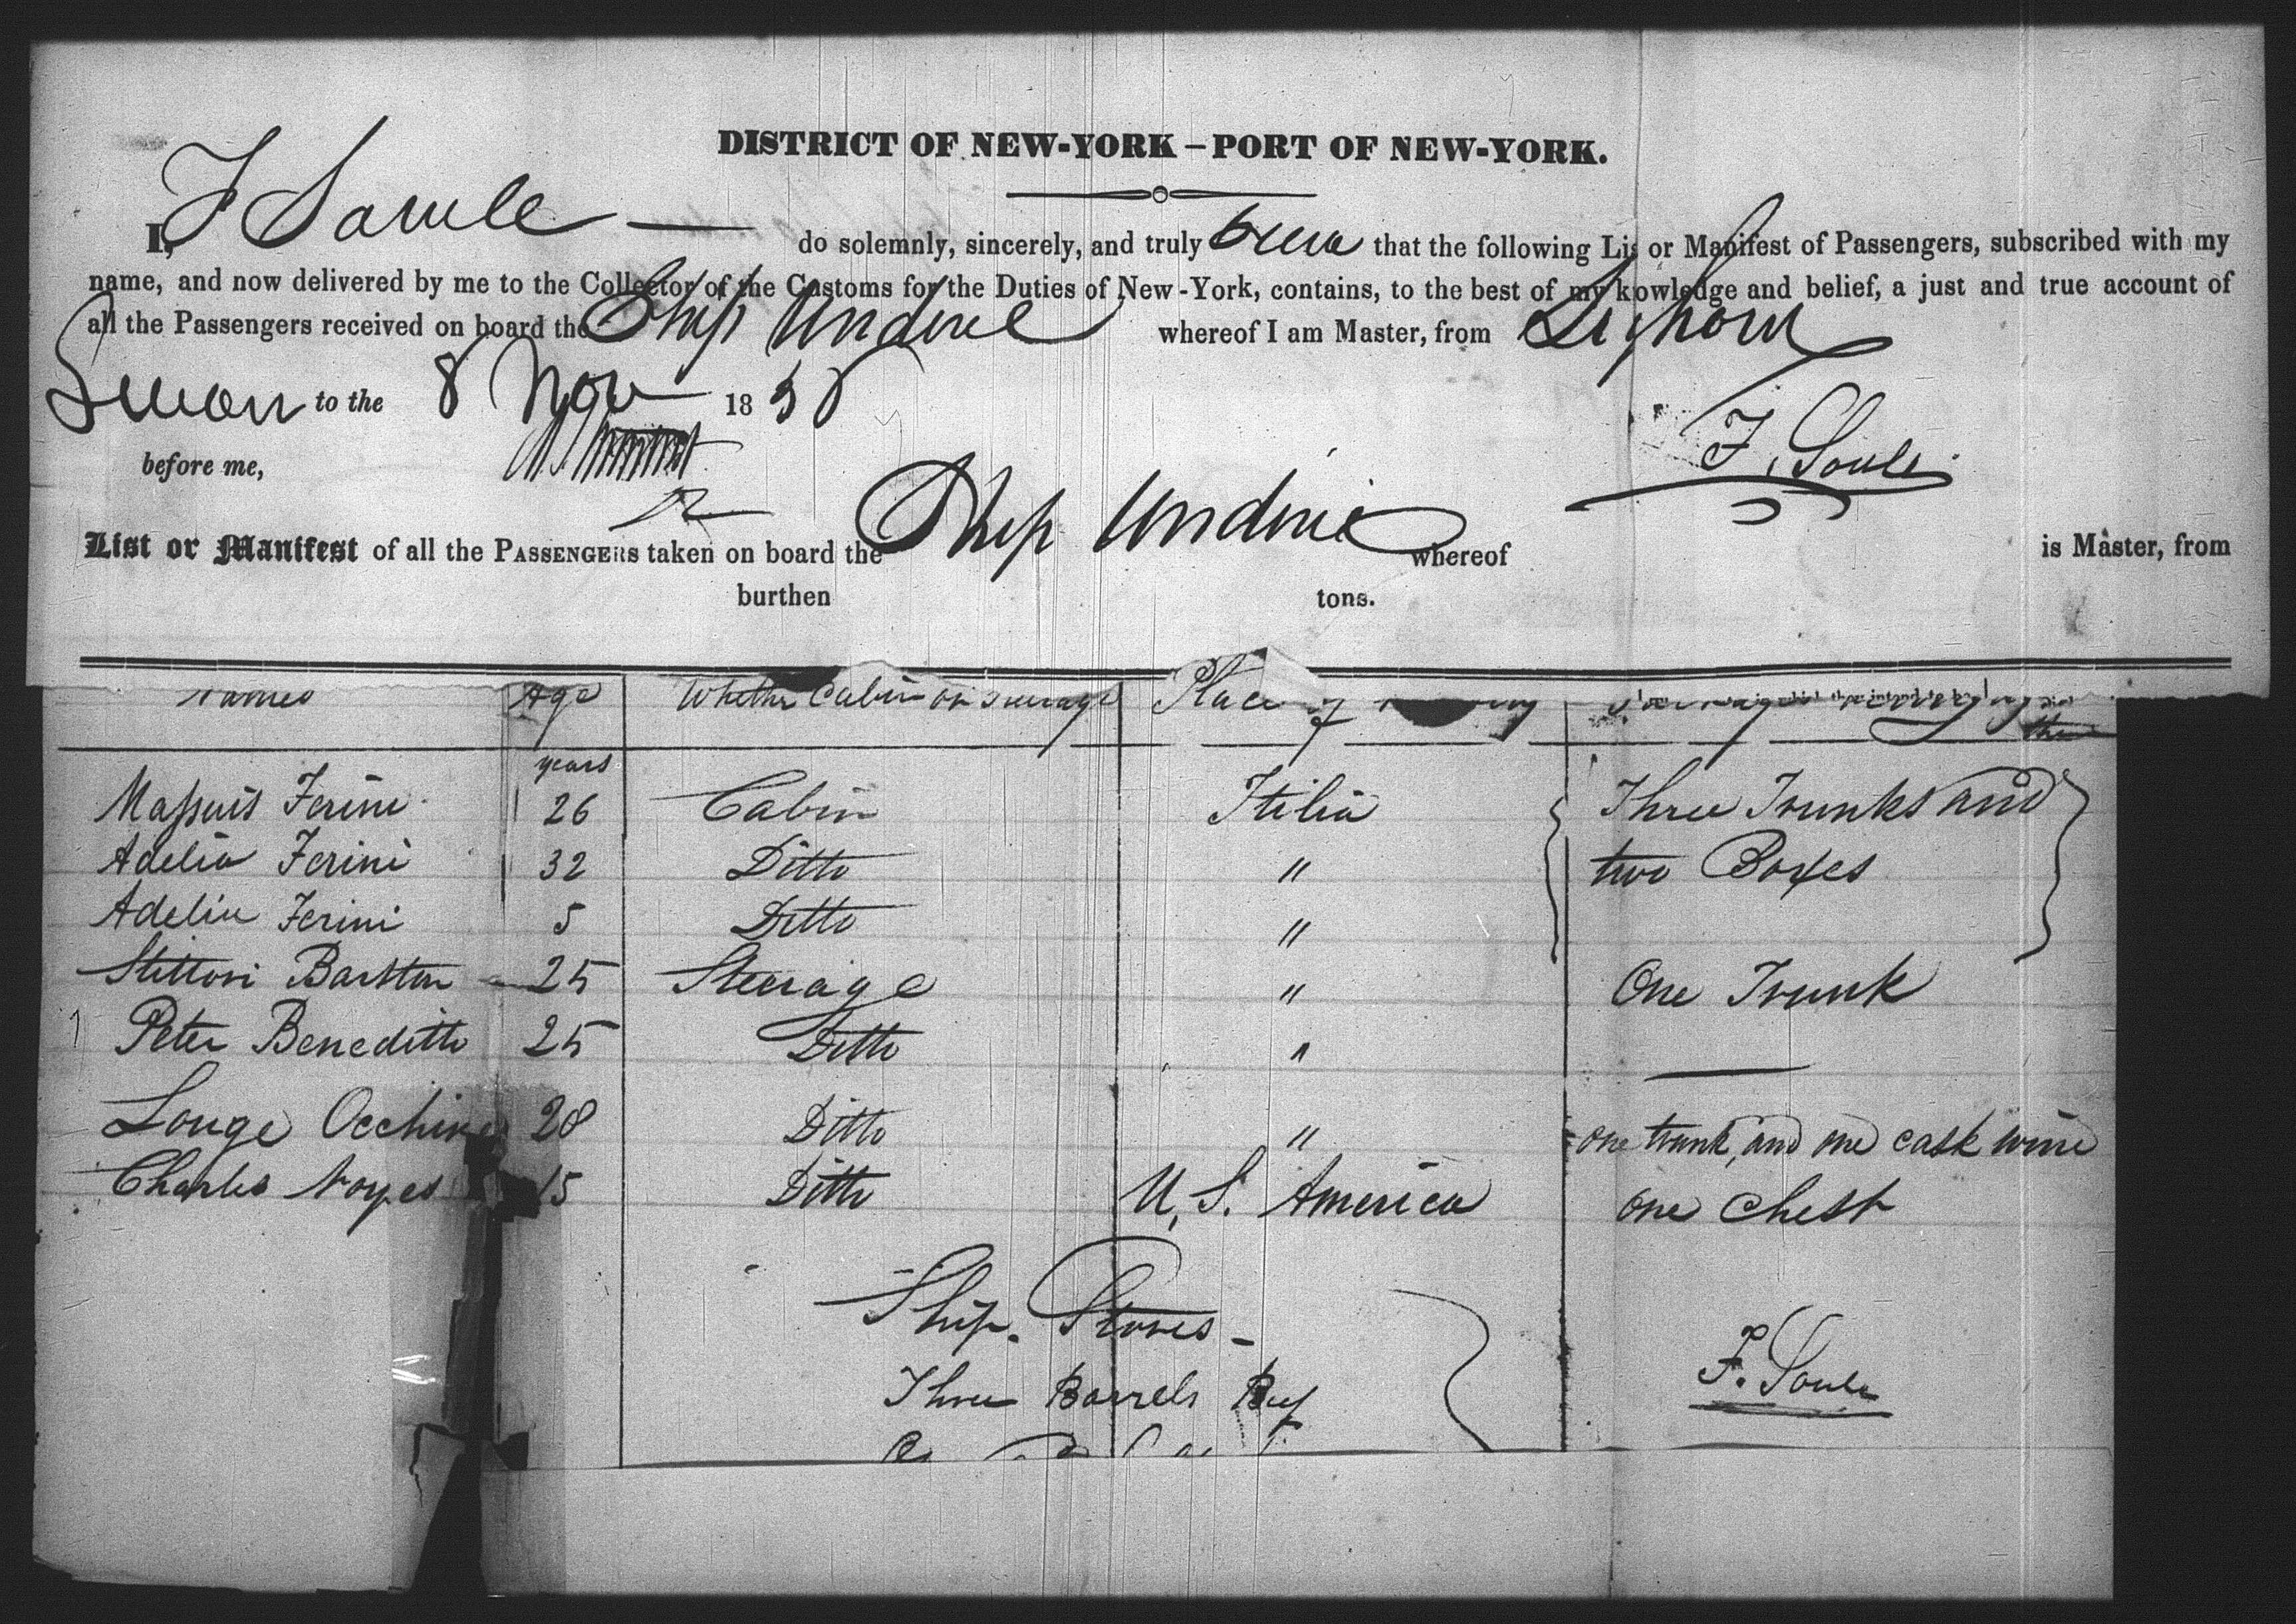 DISTRICT OF NEW-YORK – PORT OF NEW-YORK.
I, F Soule do solemnly, sincerely, and truly that the following Lis or Manifest of Passengers, subscribed with my
name, and now delivered by me to the Collector of the Customs for the Duties of New-York, contains, to the best of my kowledge and belief, a just and true account of
all the Passengers received on board the Ship Undine whereof I am Master, from Leghorn
Sworn to the 8 Nov 1858
F. Soule
before me,
List or Manifest of all the PASSENGERS taken on board the Ship Undine whereof is Master, from
burthen tons.
Names Age Whether Cabin or Steerage Place of
years
Ferini 26 Cabin Itilia Three Trunks and
Adelia Ferini 32 Ditto " two Boxes
Adelia Ferini 5 Ditto "
25 Steerage " One Trunk
Peter Beneditto 25 Ditto "
Louge 28 Ditto " one trunk, and one cask wine
Charles Noyes 15 Ditto U. S. America one chest
Ship. Stores -
Three Barrels Beef
F. Soule